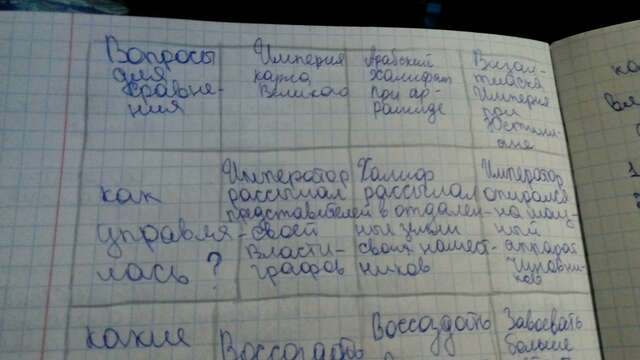 Вопросы
для
сравне-
ния
Империя
карла
Великого
Арабский
Халифат
при ар-
рашиде
Визан-
тийская
Империя
при
Юстини-
ане
как
управля-
лась?
Император
рассылал
представителей
своей
власти-
графов
Халиф
рассылал
в отдален-
ные земли
своих намест-
ников
Император
опирался
на мощ-
ный
аппарат
чиновни-
ков
какие
Воссоздать
Воссоздать
Завоевать
больше
ка